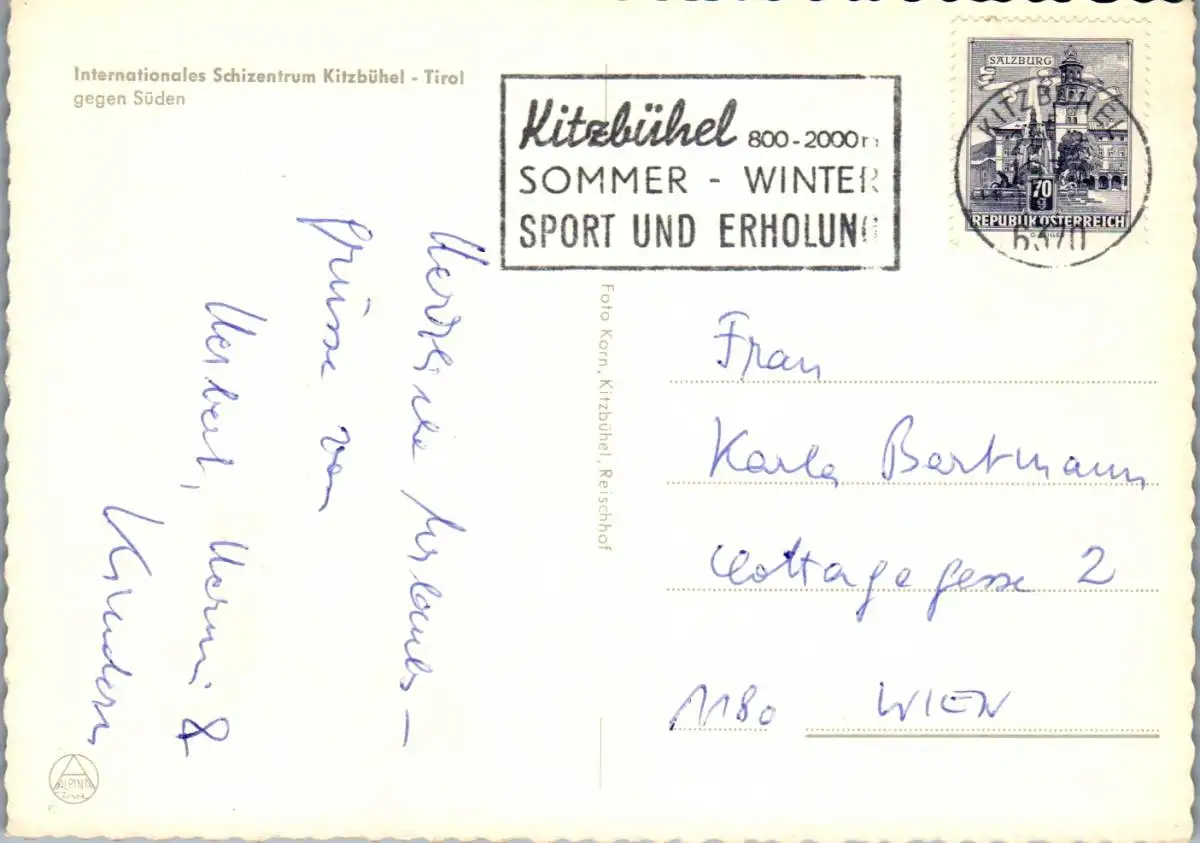 Internationales Schizentrum Kitzbühel - Tirol
gegen Süden
Kitzbühel 800-2000m
SOMMER - WINTER
SPORT UND ERHOLUNG
SALZBURG
KITZBÜHEL
70
g
REPUBLIK ÖSTERREICH
6370
Herzliche Urlaubs-
grüsse von
Herbert, Hermi &
Kindern
Foto Korn, Kitzbühel, Reischhof
Frau
Karla Bartmann
Cottagegasse 2
1180 WIEN
ALPINA